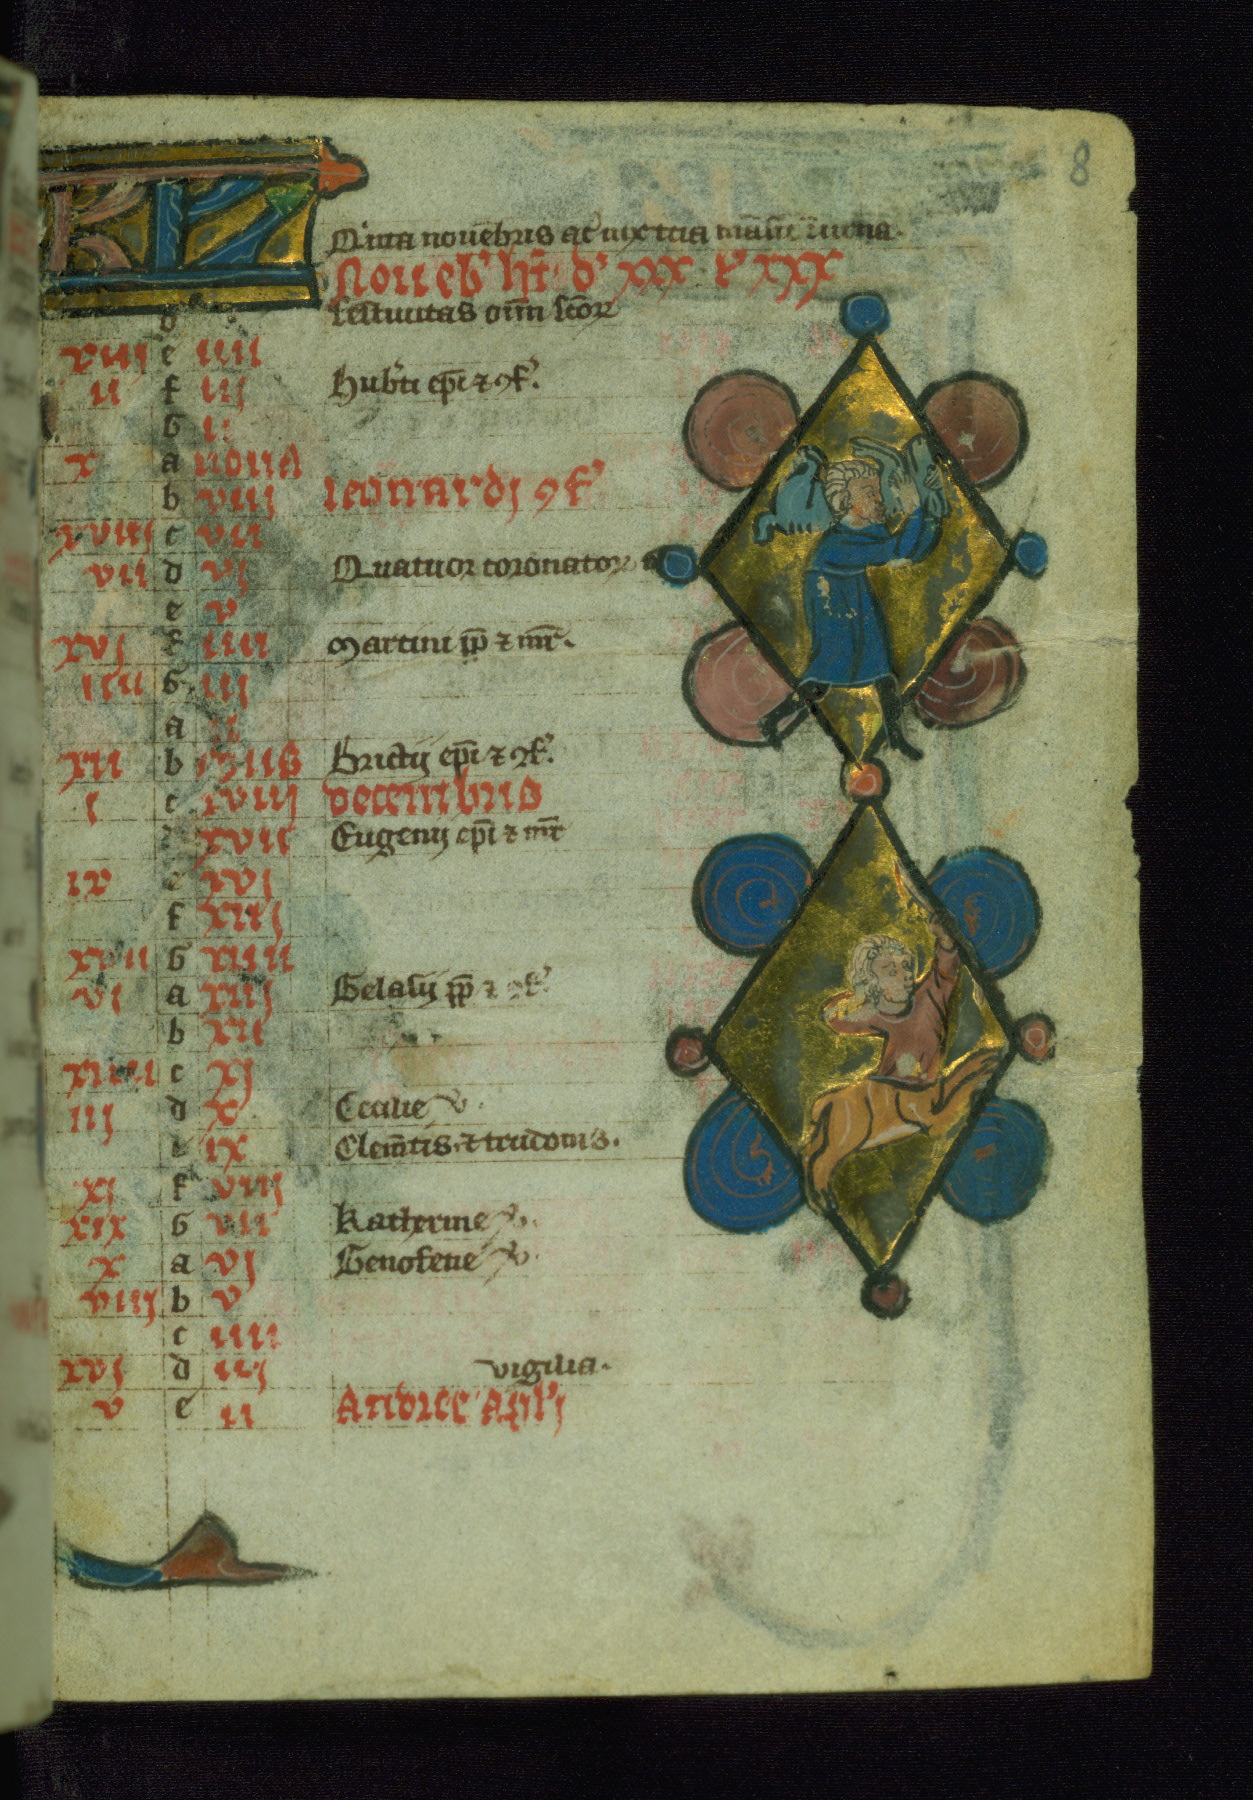 8
KL
Quinta nouēbris ac uix tcia māsit ī urna.
Nouēb' ht d' xxx l' xxx
d festiuitas om̄ scōꝝ
viij e iiii
ii f iij Hub'ti epi ⁊ ꝯf'.
G i:
x a nona
b viij leonardj ꝯf'
xviij c vii
vii d vj Quatuor coronatoꝝ
e v
xvj f iiii Martini pp ⁊ mr̄.
iiii G iij
a ii
xii b idus Brictij epi ⁊ ꝯf'.
j c xviij decembris
xvii Eugenij epi ⁊ mr̄
ix e xvj
f xv
xvii G xiiii
vj a xiij Gelasij pp ⁊ ꝯf'
b xii
xiiii c xj
iij d x Cecilie v.
e ix Clem̄tis. ⁊ trudonis.
xj f viij
xix G vii Katherine v.
x a vj Genofeue v.
viij b v
c iiii
xvj d iij vigilia.
v e ii Andree apl'i